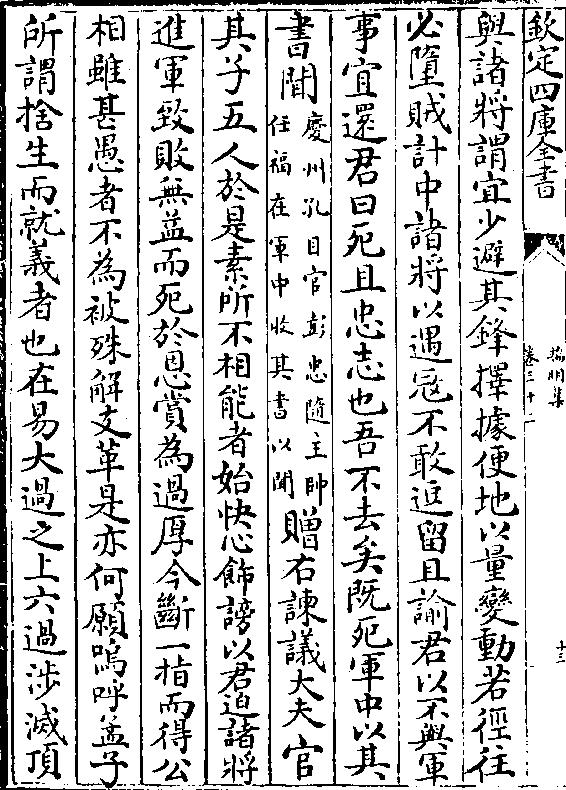 欽定四庫全書
端明集
十三
與諸將謂宜少避其鋒擇據便地以量變動若徑往
必墮賊計中諸將以遇寇不敢逗留且諭君以不與軍
事宜還君曰死且忠志也吾不去矣既死軍中以其
書聞慶州孔目官彭忠隨主帥任福在軍中收其書以聞贈右諫議大夫官
其子五人於是素所不相能者始快心飾謗以君迫諸將
進軍致敗無益而死於恩賞為過厚今斷一指而得公
相雖甚愚者不為被殊解支革是亦何願嗚呼孟子
所謂捨生而就義者也在易大過之上六過涉滅頂